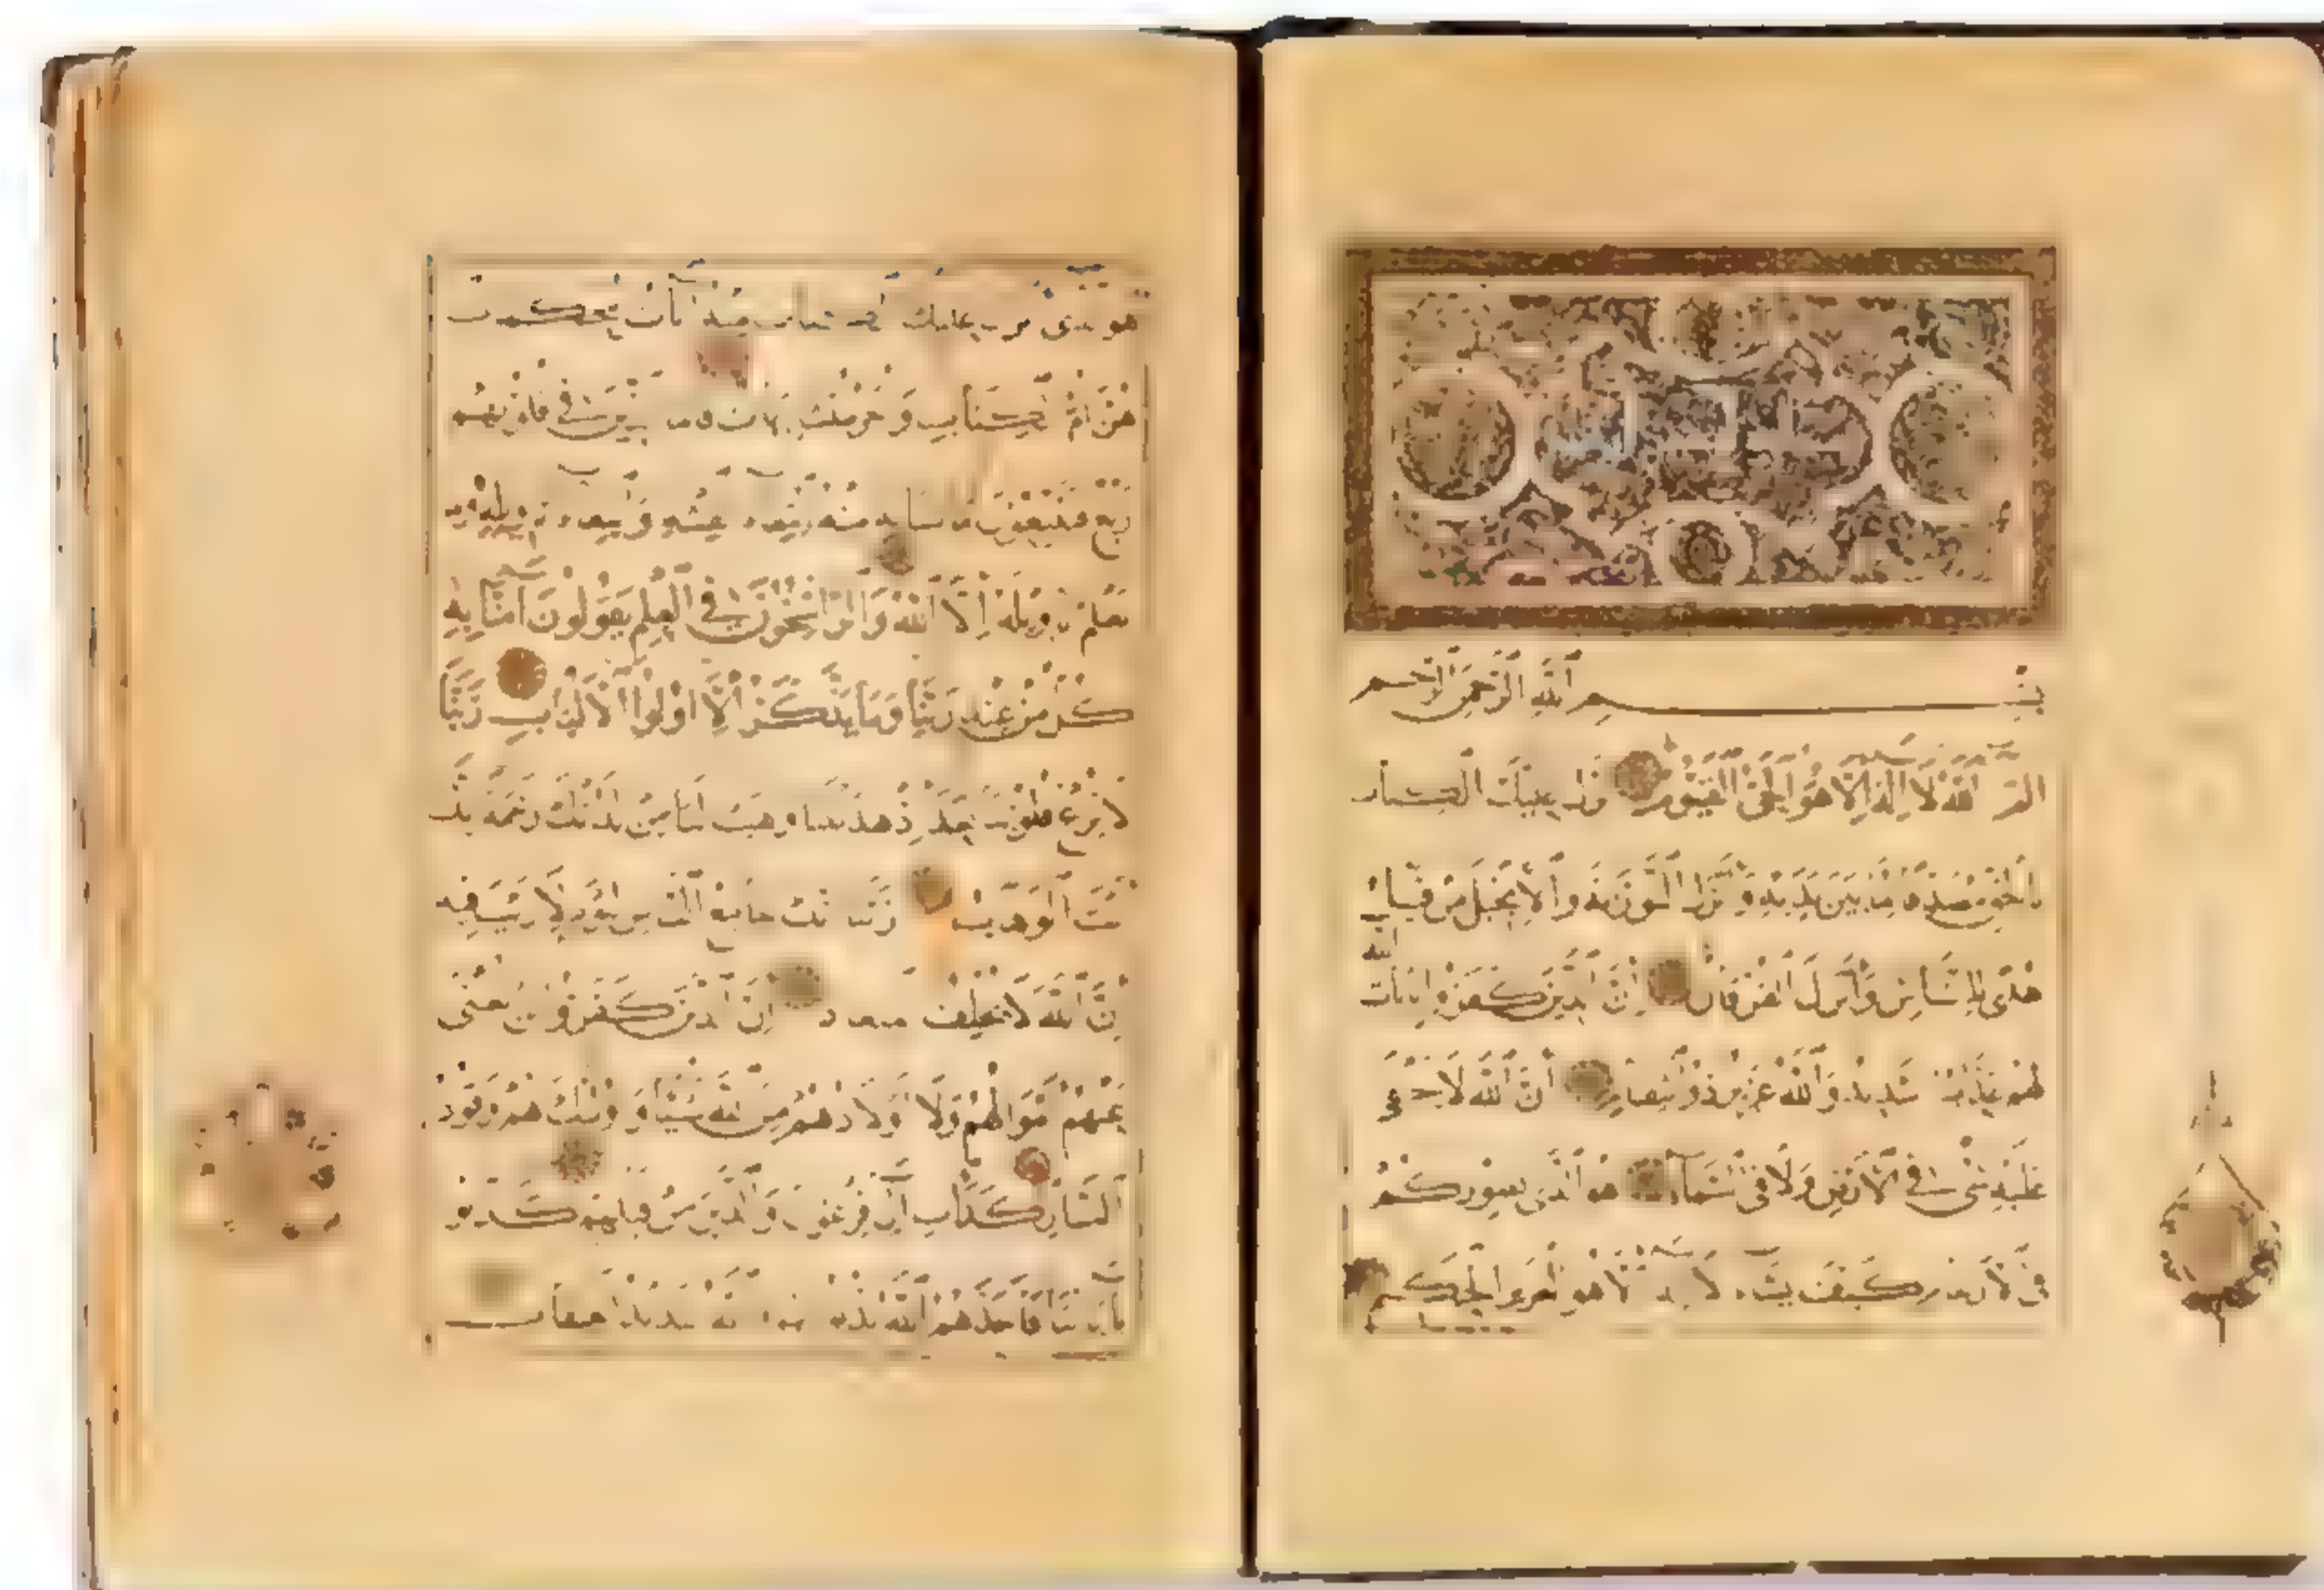 بسم الله الرحمن الرحيم
الم الله لا إله إلا هو الحي القيوم نزل عليك الكتاب
بالحق مصدقا لما بين يديه وأنزل التورىة والإنجيل من قبل
هدى للناس وأنزل الفرقان إن الذين كفروا بآيات الله
لهم عذاب شديد والله عزيز ذو انتقام إن الله لا يخفى
عليه شيء في الأرض ولا في السماء هو الذي يصوركم
في الأرحام كيف يشاء لا إله إلا هو العزيز الحكيم
هو الذي أنزل عليك الكتاب منه آيات محكمات
هن أم الكتاب وأخر متشابهات فأما الذين في قلوبهم
زيغ فيتبعون ما تشابه منه ابتغاء الفتنة وابتغاء تأويله وما
يعلم تأويله إلا الله والراسخون في العلم يقولون آمنا به
كل من عند ربنا وما يذكر إلا أولوا الألباب ربنا
لا تزغ قلوبنا بعد إذ هديتنا وهب لنا من لدنك رحمة إنك
أنت الوهاب ربنا إنك جامع الناس ليوم لا ريب فيه
إن الله لا يخلف الميعاد إن الذين كفروا لن تغني
عنهم أموالهم ولا أولادهم من الله شيئا وأولئك هم وقود
النار كدأب آل فرعون والذين من قبلهم كذبوا
بآياتنا فأخذهم الله بذنوبهم والله شديد العقاب